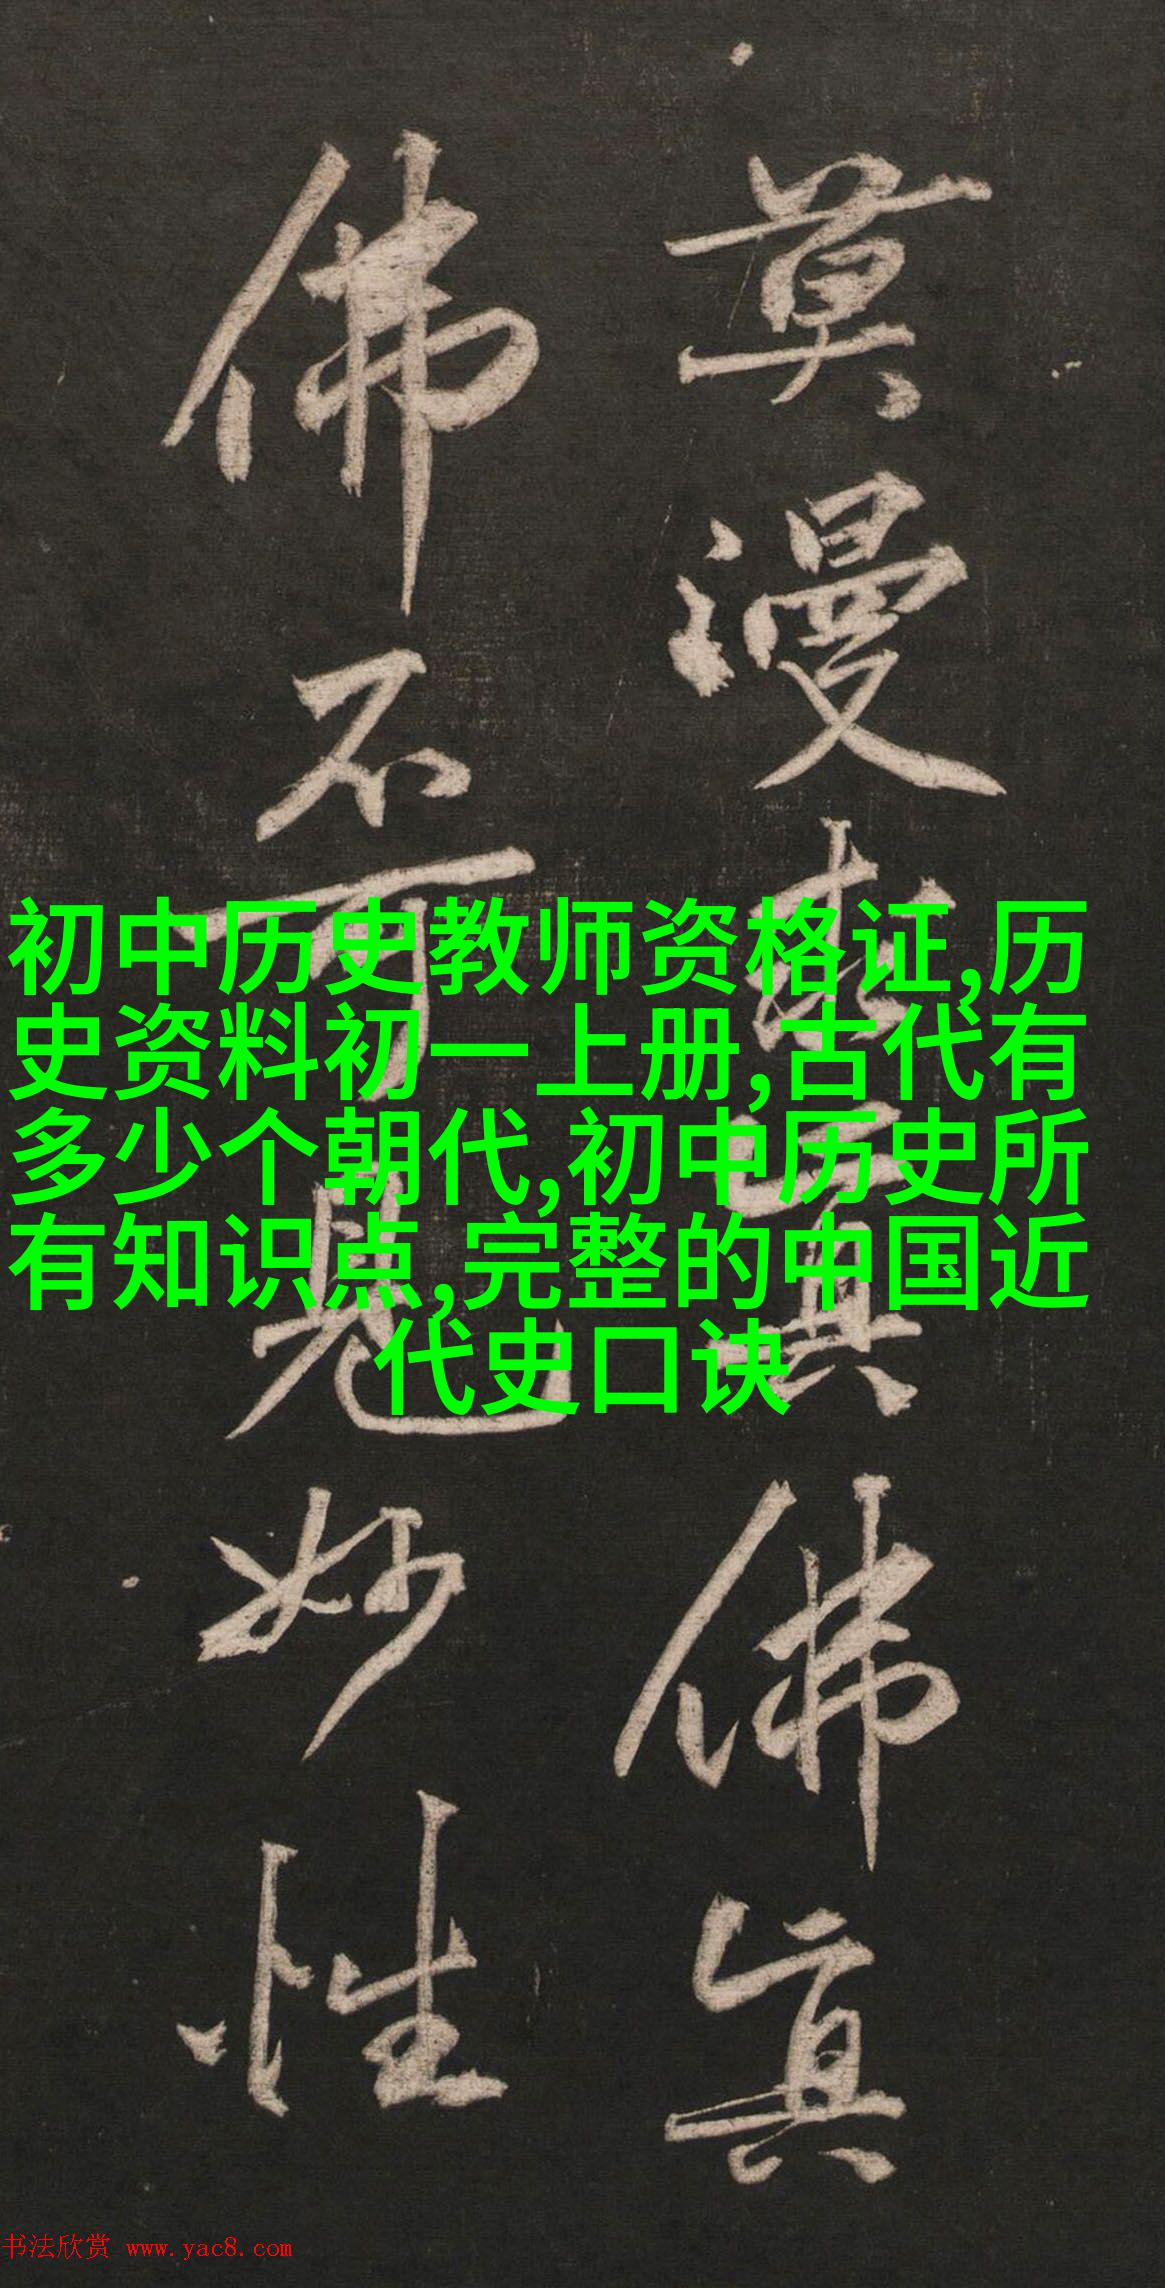 莫漫求真佛真
佛不可見妙性
初中历史教师资格证,历
史资料初一上册,古代有
多少个朝代,初中历史所
有知识点,完整的中国近
代史口诀
书法欣赏 www.yac8.com